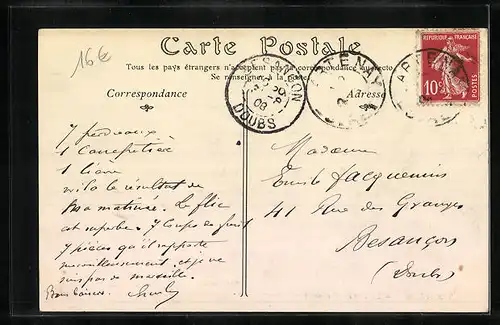 16€
Carte Postale
Tous les pays étrangers n'acceptent pas la correspondance au recto
Se renseigner à la poste
Correspondance
Adresse
BESANÇON
DOUBS
ARTENAY
ARTENAY
REPUBLIQUE FRANÇAISE
10c
POSTES
7 perdreaux
1 Canepetière
1 lièvre
voilà le résultat de
ma matinée. Le flic
est superbe. 7 Coups de fusil
7 pièces qu'il rapporte
merveilleusement et je ne
suis pas de
Bons baisers Charley
Madame
Emile Jacquemin
41 Rue des Granges
Besançon
(Doubs)